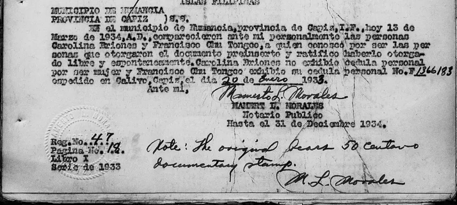 ISLAS FILIPINAS
MUNICIPIO DE NUMANCIA
PROVINCIA DE CAPIZ ) S.S.
EN el municipio de Numancia, provincia de Capis, I.F., hoy 13 de
Marzo de 1934, A.D., comparecieron ante mi personalmente las personas
Carolina Briones y Francisco Chu Tongco, a quien conosco por ser las per
sonas que otorgaron el documento preinserto y ratifico haberlo otorga-
do libre y espontreamente. Carolina Briones no exhibio cedula personal
por ser mujer y Francisco Chu Tongco exhibio su cedula personal No. F1366183
expedido en Calivo, Capis, el dia 20 de Enero 1933.
Ante mi,
Manuerto L. Morales
L. MORALES
Notario Publico
Hasta el 31 de Deciembre 1934.
Reg. No. 47
Pagina No. 18
Libro I
Serie de 1933
Note: The original bears 50 centavo
documentary stamp.
M. L. Morales